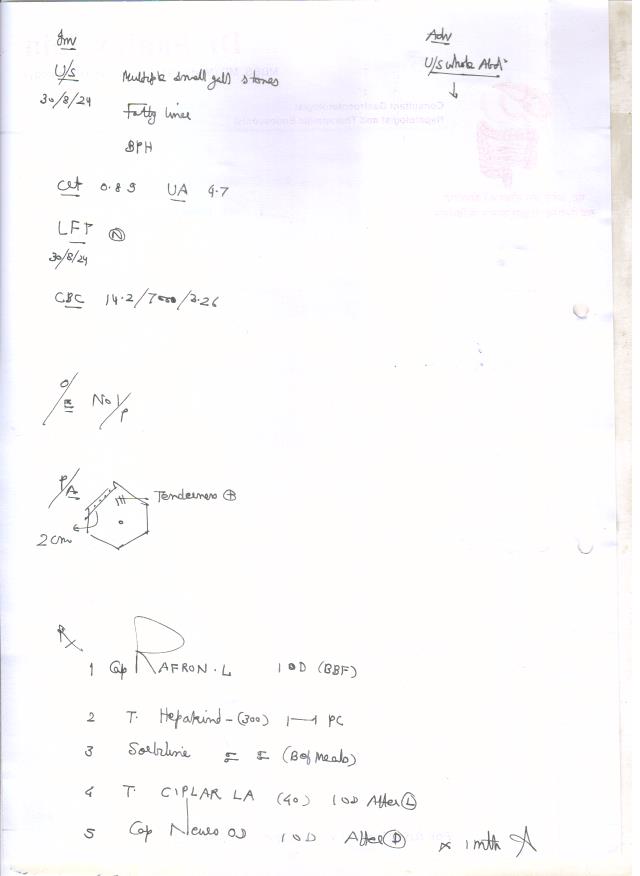 Inv
Adv
U/S whole Abd
U/S Multiple small gall stones
30/8/24
Fatty liver
BPH
Cet 0.89 UA 4.7
LFT (N)
30/8/24
CBC 14.2/7000/2.26
O/E No I/P
P/A Tenderness (+)
2 cm
Rx
1 Cap RAFRON-L 1 OD (BBF)
2 T. Hepakind-(300) 1—1 PC
3 Sorbiline (B of Meals)
4 T. CIPLAR LA (40) 1 OD After (L)
5 Cap Neuro OD 1 OD After (D) x 1 mth